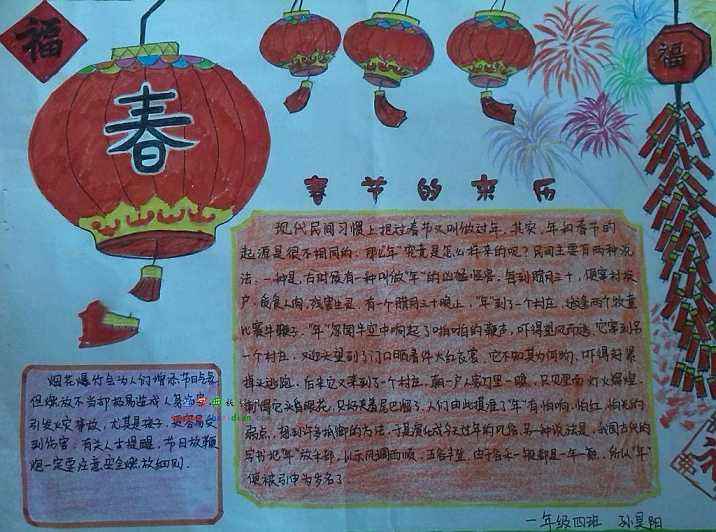 福
春
福
春节的来历
现代民间习惯上把过春节又叫做过年。其实,年和春节的
起源是很不相同的。那么"年"究竟是怎么样来的呢?民间主要有两种说
法:一种是,古时候有一种叫做"年"的凶猛怪兽,每到腊月三十,便窜村挨
户,觅食人肉,残害生灵。有一个腊月三十晚上,"年"到了一个村庄,适逢两个牧童
比赛牛鞭子。"年"忽闻半空中响起了啪啪的鞭声,吓得望风而逃。它窜到另
一个村庄,又迎头望到了门口晒着件大红衣裳,它不知其为何物,吓得赶紧
掉头逃跑。后来它又来到了一个村庄,朝一户人家门里一瞧,只见里面灯火辉煌
刺得它头昏眼花,只好夹着尾巴溜了。人们由此摸准了"年"有怕响,怕红,怕光的
弱点,想到许多抵御的方法,于是演化成今天过年的风俗。另一种说法是,我国古代的
字书把"年"放禾部,以示风调雨顺,五谷丰登。由于谷禾一般都是一年一熟。所以"年"
便被引申为岁名了
烟花爆竹会为人们增添节日气氛
但燃放不当却极易造成人身
引发火灾事故,尤其是孩子,更容易受
到伤害。有关人士提醒,节日放鞭
炮一定要注意安全燃放细则。
一年级四班 孙昊阳